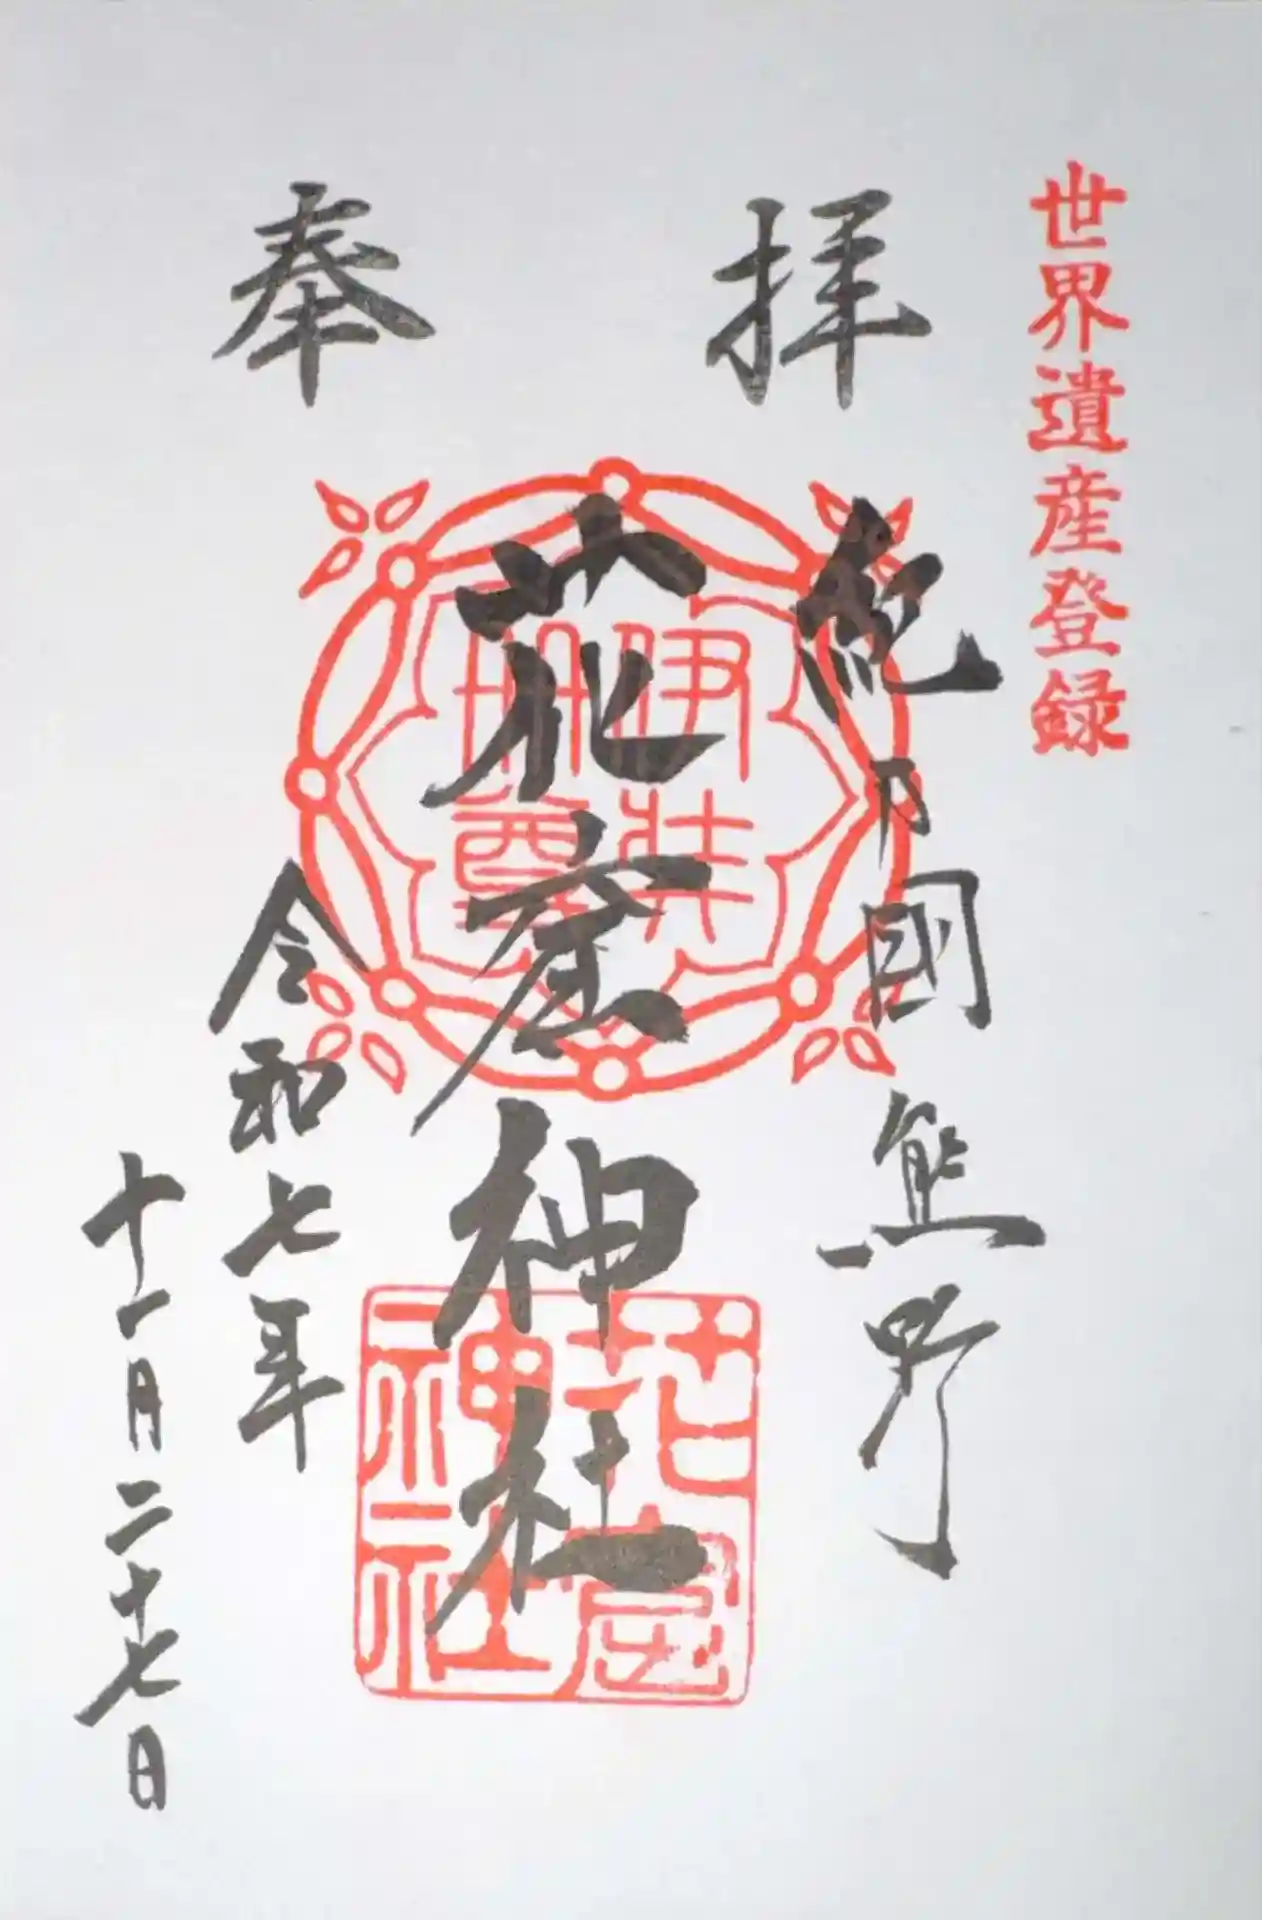 世界遺産登録
奉拝
紀乃國 熊野
花窟神社
伊弉
冊尊
花窟
神社
令和七年
十一月二十七日